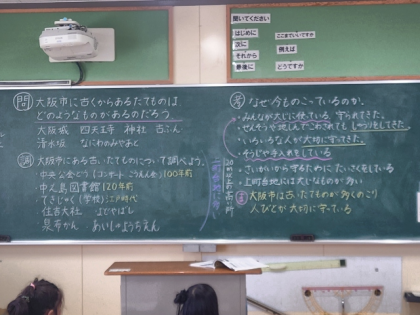 聞いてください
はじめに
次に
それから
最後に
ここまでいいですか
例えば
どうですか
問 大阪市に古くからあるたてものは
どのようなものがあるのだろう。
大阪城 四天王寺 神社 古ふん
清水坂 なにわのみやあと
調 大阪市にある古いたてものについて調べよう。
・中央公会どう(コンサート こうえん会) 100年前
・中之島図書館 120年前
・てきじゅく(学校) 江戸時代
・住吉大社
・泉布かん あいしゅようちえん
考 なぜ今ものこっているのか。
・みんなが大じに使っている 守られてきた。
・せんそうや地しんでこわれてもしゅうりをしてきた。
・いろいろな人が大切に守ってきた。
・そうじや手入れをしている
・さいがいから守るためにたいさくをしている
・上町台地には大じなものが多い
ま 大阪市は古いたてものが多くのこり
人びとが大切に守っている